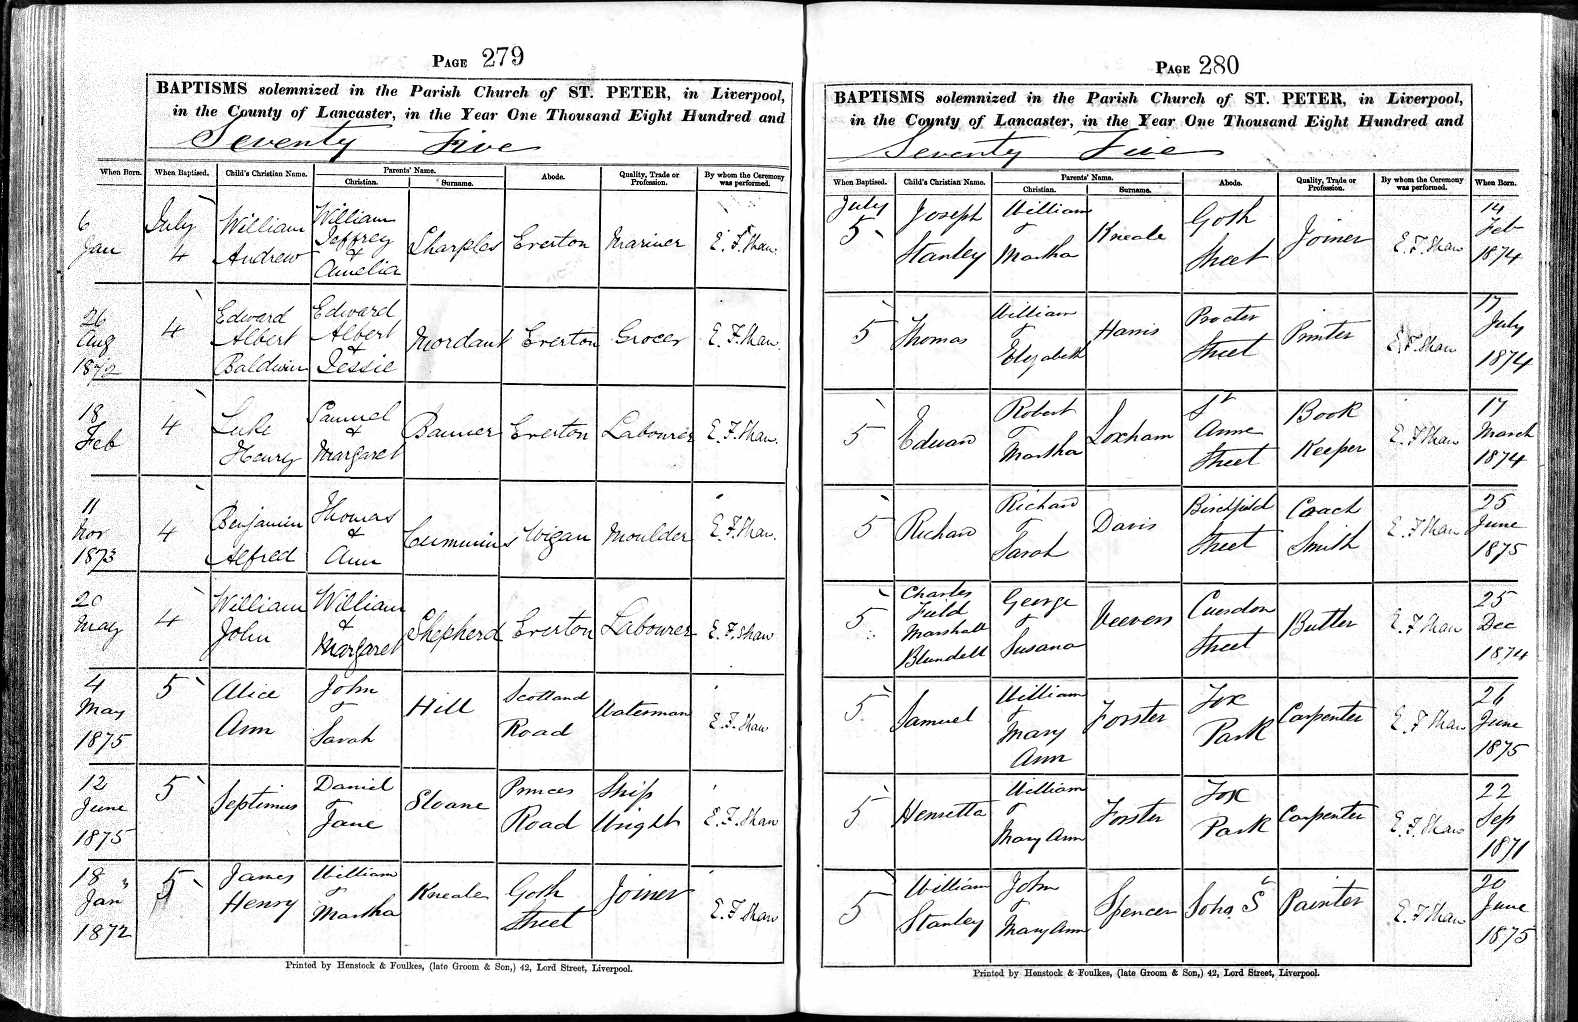 PAGE 279
BAPTISMS solemnized in the Parish Church of ST. PETER, in Liverpool,
in the County of Lancaster, in the Year One Thousand Eight Hundred and
Seventy Five
When Born. When Baptised. Child's Christian Name. Parents' Name. Christian. Surname. Abode. Quality, Trade or Profession. By whom the Ceremony was performed.
6 Jan July 4 William Andrew William Jeffrey & Amelia Sharples Everton Mariner E. F. Shaw.
26 Aug 1872 4 Edward Albert Baldwin Edward Albert & Jessie Mordant Everton Grocer E. F. Shaw.
18 Feb 4 Luke Henry Samuel & Margaret Banner Everton Labourer E. F. Shaw.
11 Nov 1873 4 Benjamin Alfred Thomas & Ann Cummins Wigan Moulder E. F. Shaw.
20 May 4 William John William & Margaret Shepherd Everton Labourer E. F. Shaw
4 May 1875 5 Alice Ann John & Sarah Hill Scotland Road Waterman E. F. Shaw
12 June 1875 5 Septimus Daniel & Jane Sloane Princes Road Ship Wright E. F. Shaw
18 Jan 1872 5 James Henry William & Martha Kneale Goth Street Joiner E. F. Shaw
Printed by Henstock & Foulkes, (late Groom & Son,) 42, Lord Street, Liverpool.
PAGE 280
BAPTISMS solemnized in the Parish Church of ST. PETER, in Liverpool,
in the County of Lancaster, in the Year One Thousand Eight Hundred and
Seventy Five
When Baptised. Child's Christian Name. Parents' Name. Christian. Surname. Abode. Quality, Trade or Profession. By whom the Ceremony was performed. When Born.
July 5 Joseph Stanley William & Martha Kneale Goth Street Joiner E. F. Shaw 14 Feb 1874
5 Thomas William & Elizabeth Harris Procter Street Printer E. F. Shaw 17 July 1874
5 Edward Robert & Martha Loxham St Anne Street Book Keeper E. F. Shaw 17 March 1874
5 Richard Richard & Sarah Davis Birchfield Street Coach Smith E. F. Shaw 25 June 1875
5 Charles Field Marshall Blundell George & Susana Veevers Cuerdon Street Butler E. F. Shaw 25 Dec 1874
5 Samuel William & Mary Ann Forster Fox Park Carpenter E. F. Shaw 26 June 1875
5 Henretta William & Mary Ann Forster Fox Park Carpenter E. F. Shaw 22 Sep 1871
5 William Stanley John & Mary Ann Spencer Soho St Painter E. F. Shaw 20 June 1875
Printed by Henstock & Foulkes, (late Groom & Son,) 42, Lord Street, Liverpool.